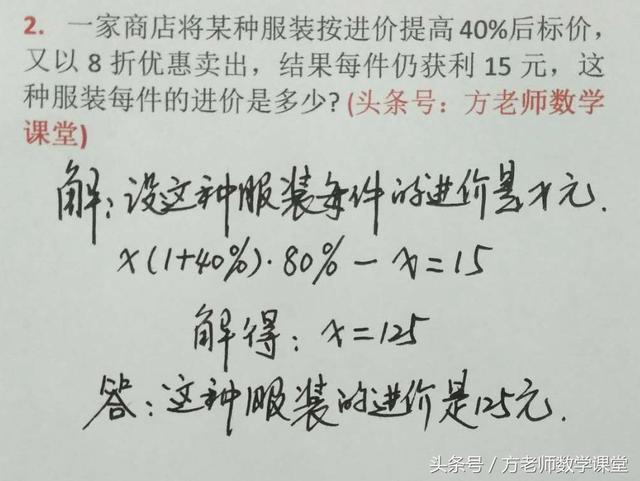 2. 一家商店将某种服装按进价提高40%后标价，
又以8折优惠卖出，结果每件仍获利15元，这
种服装每件的进价是多少?(头条号：方老师数学
课堂)
解：设这种服装每件的进价是x元.
x(1+40%)·80%-x=15
解得：x=125
答：这种服装的进价是125元.
头条号 / 方老师数学课堂